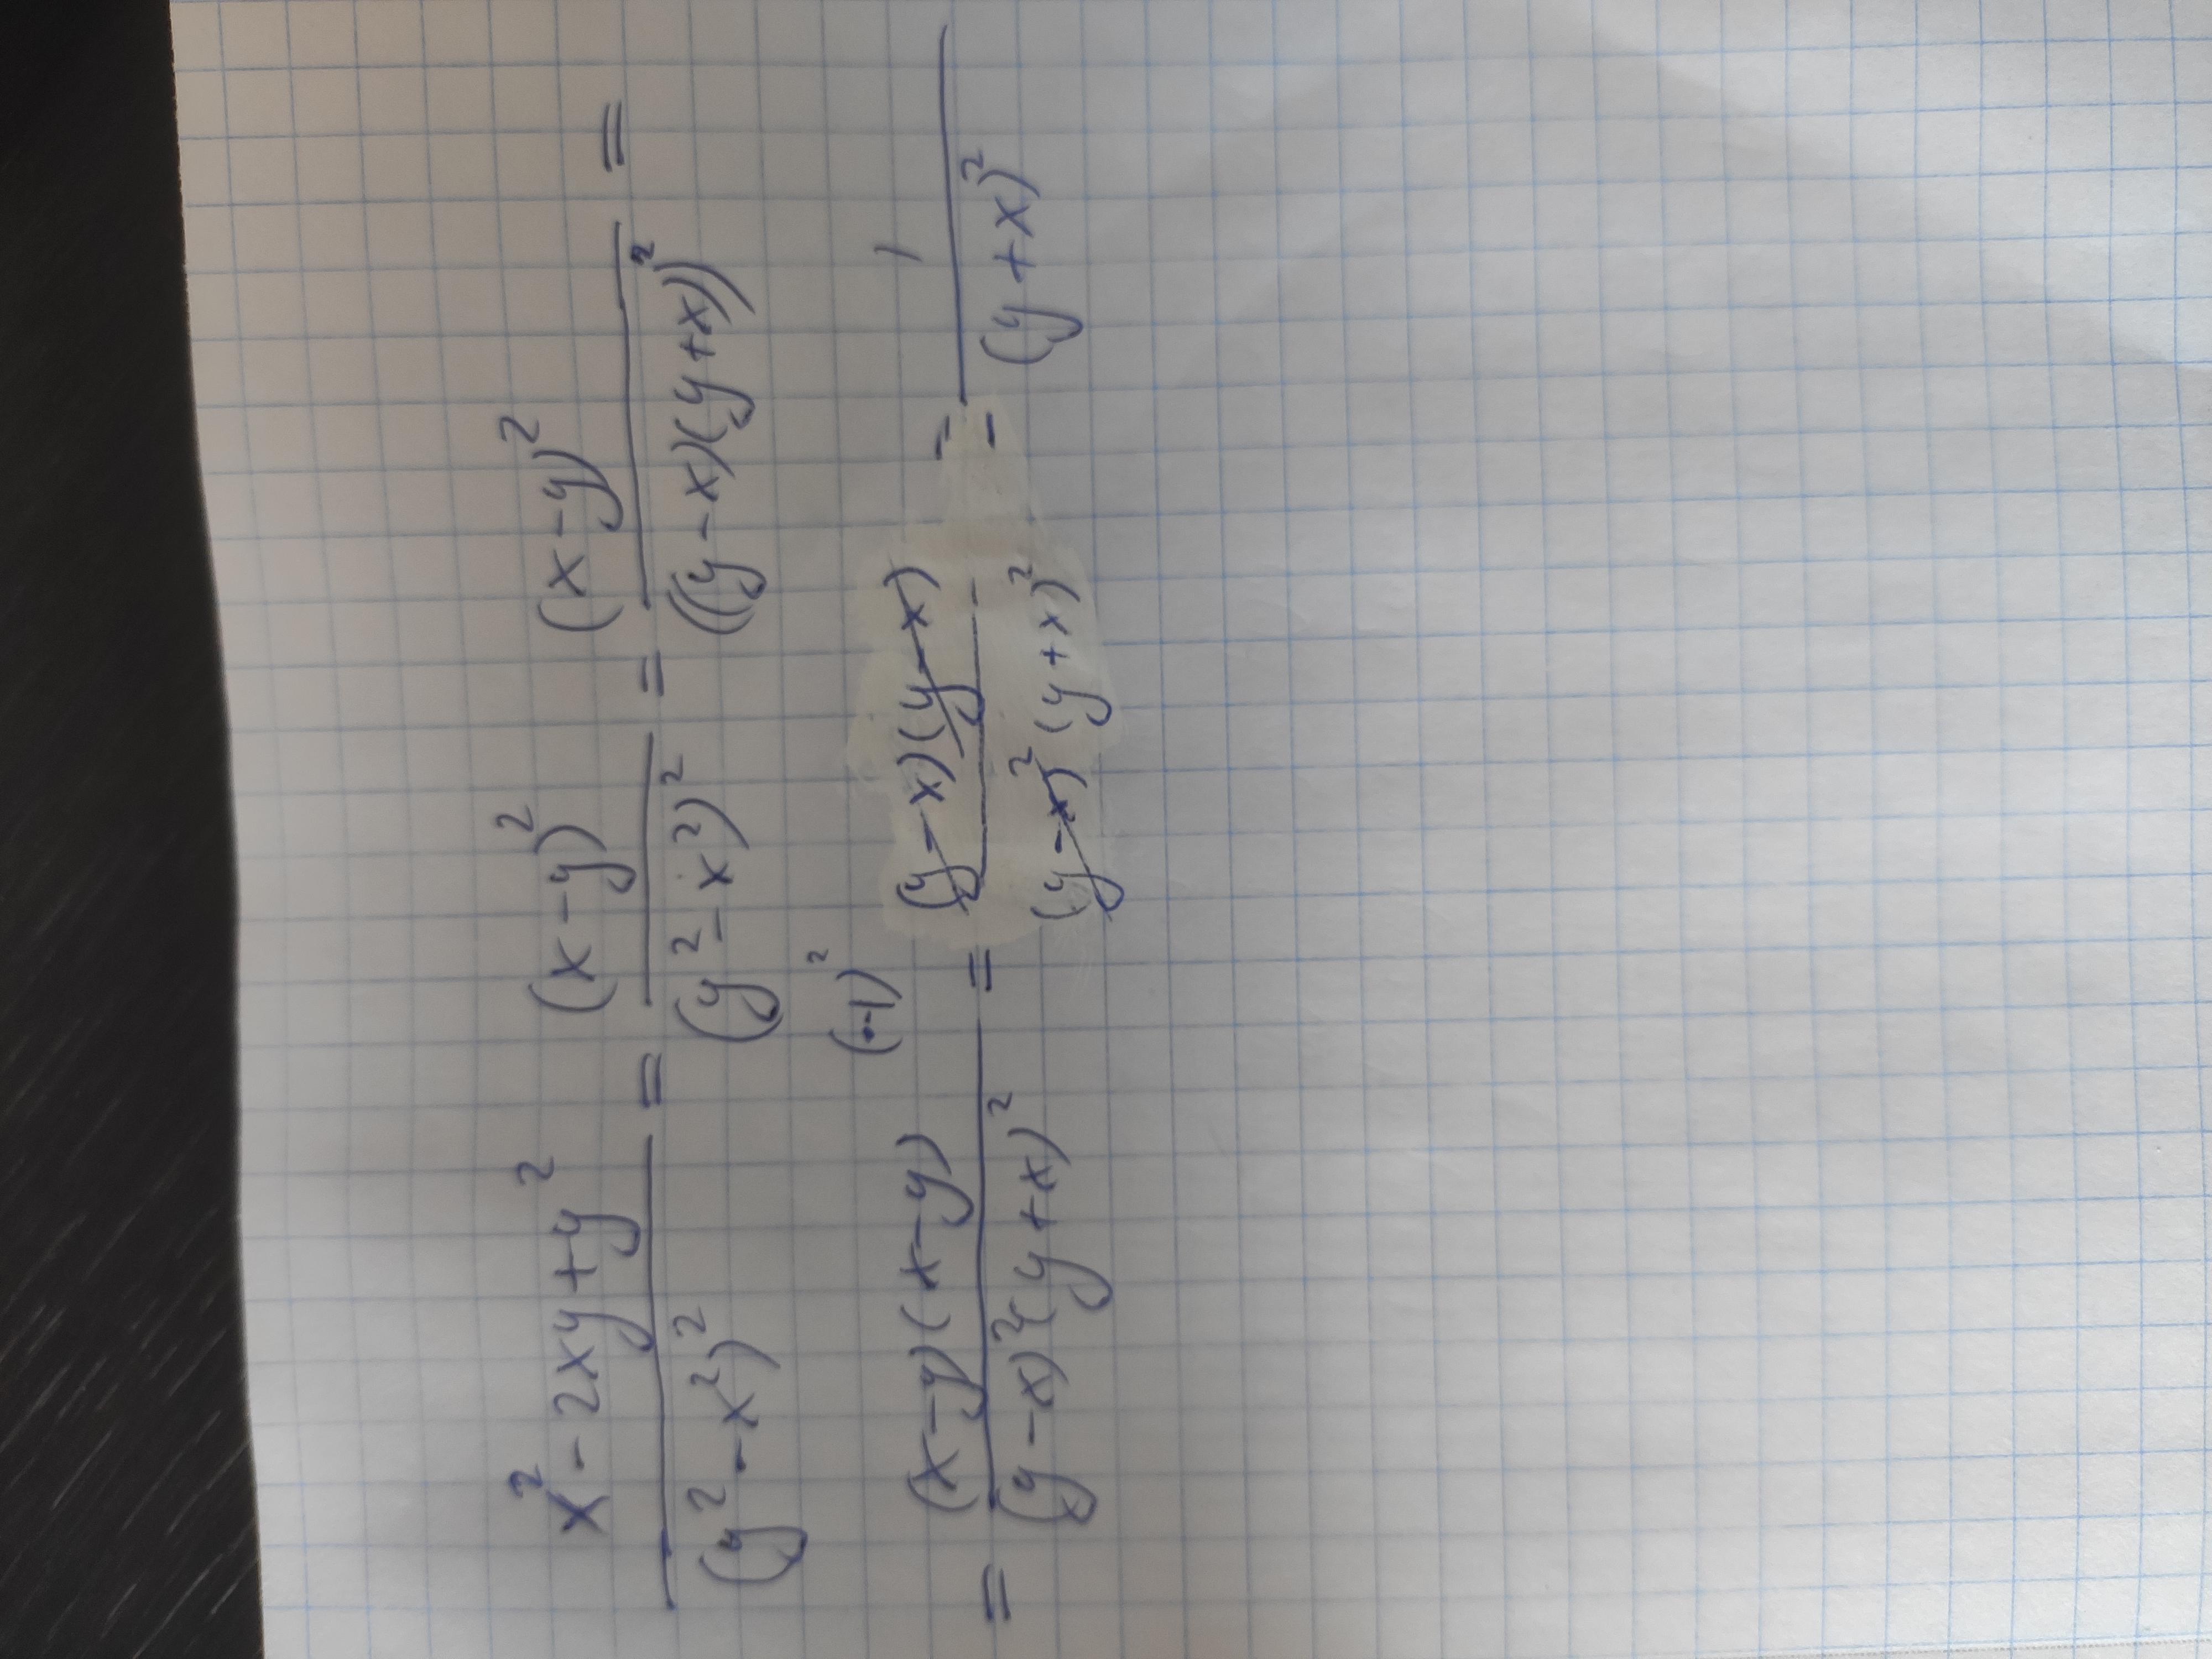 (x² - 2xy + y²)/(y² - x²)² = (x - y)²/(y² - x²)² = (x - y)²/((y - x)(y + x))² =
(-1)²
= (x - y)(x - y)/(y - x)²(y + x)² = (y - x)(y - x)/(y - x)²(y + x)² = 1/(y + x)²